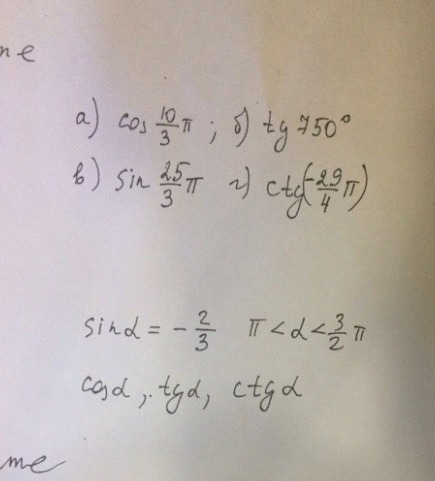 а) cos 10/3 π ; б) tg 750°
в) sin 25/3 π г) ctg(-29/4 π)
sinα = - 2/3 π < α < 3/2 π
cosα, tgα, ctgα